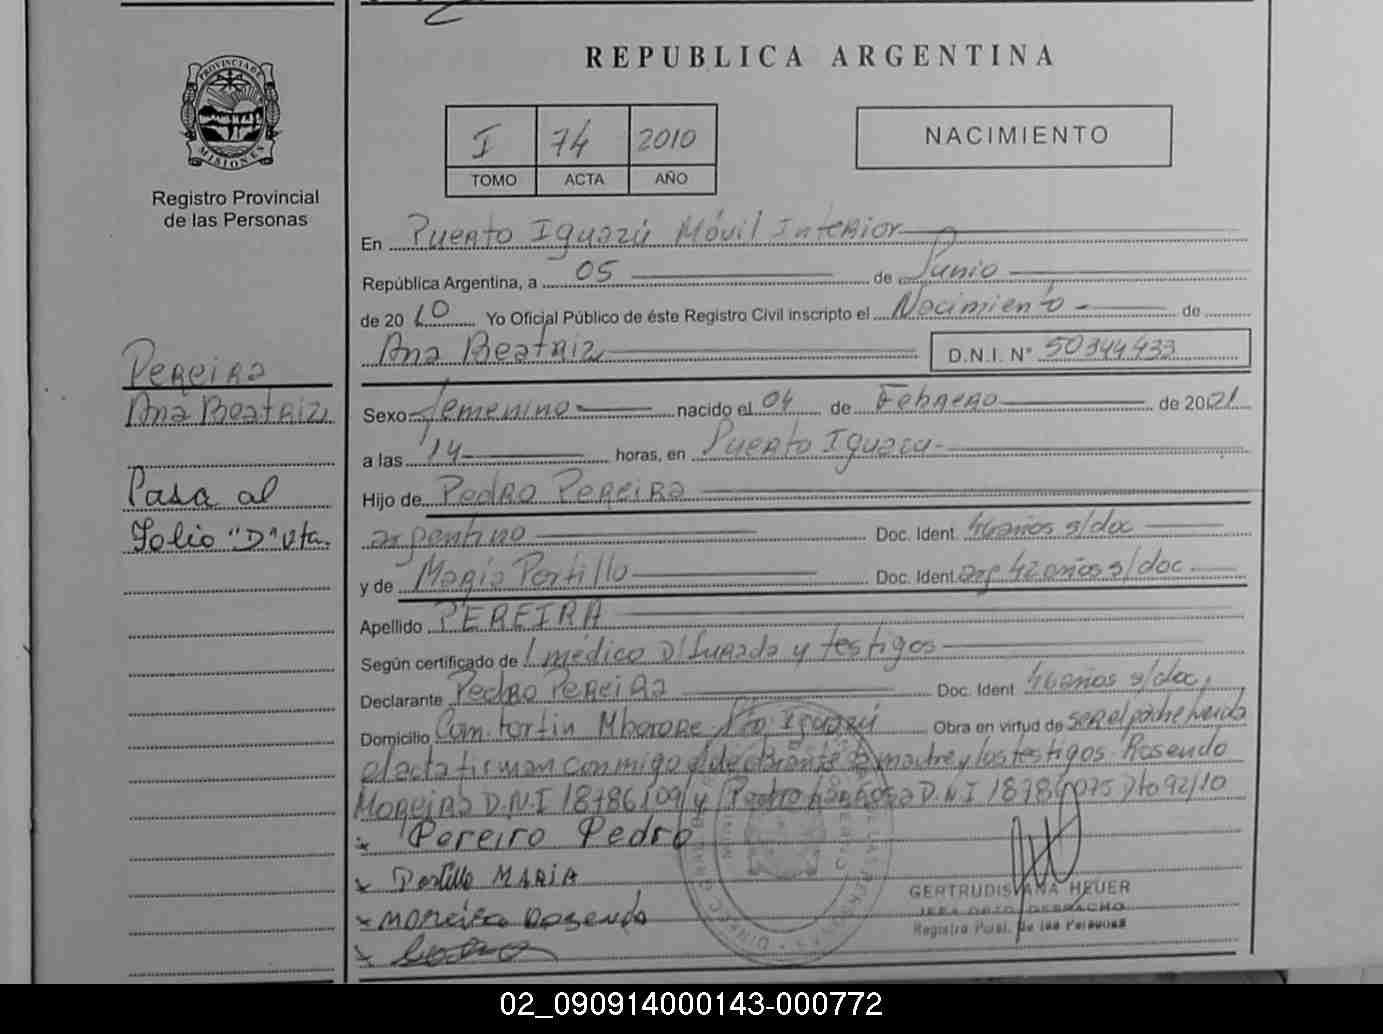 REPUBLICA ARGENTINA
PROVINCIA DE
MISIONES
Registro Provincial
de las Personas
I 74 2010
TOMO ACTA AÑO
NACIMIENTO
En Puerto Iguazú Móvil Interior
República Argentina, a 05 de Junio
de 2010 Yo Oficial Público de éste Registro Civil inscripto el Nacimiento de
Ana Beatriz D.N.I. N° 50344433
Pereira
Ana Beatriz
Pasa al
Folio "D" vta.
Sexo femenino nacido el 04 de Febrero de 20
a las 14 horas, en Puerto Iguazu
Hijo de Pedro Pereira
argentino Doc. Ident. 46 años s/doc
y de Maria Portillo Doc. Ident. arg 42 años s/doc
Apellido PEREIRA
Según certificado de 1 médico D/Jurada y testigos
Declarante Pedro Pereira Doc. Ident 46 años s/doc,
Domicilio Com. Fortin Mborore Pto Iguazú Obra en virtud de ser el padre leida
el acta firman conmigo el declarante la madre y los testigos Rosendo
Moreira D.N.I 18786109 y Pedro D.N.I Dto 92/10
x Pereiro Pedro
x Portillo MARIA
x Moreira Rosendo
x
GERTRUDIS ANA HEUER
JEFA DPTO DESPACHO
Registro Pcial. de las Personas
02_090914000143-000772